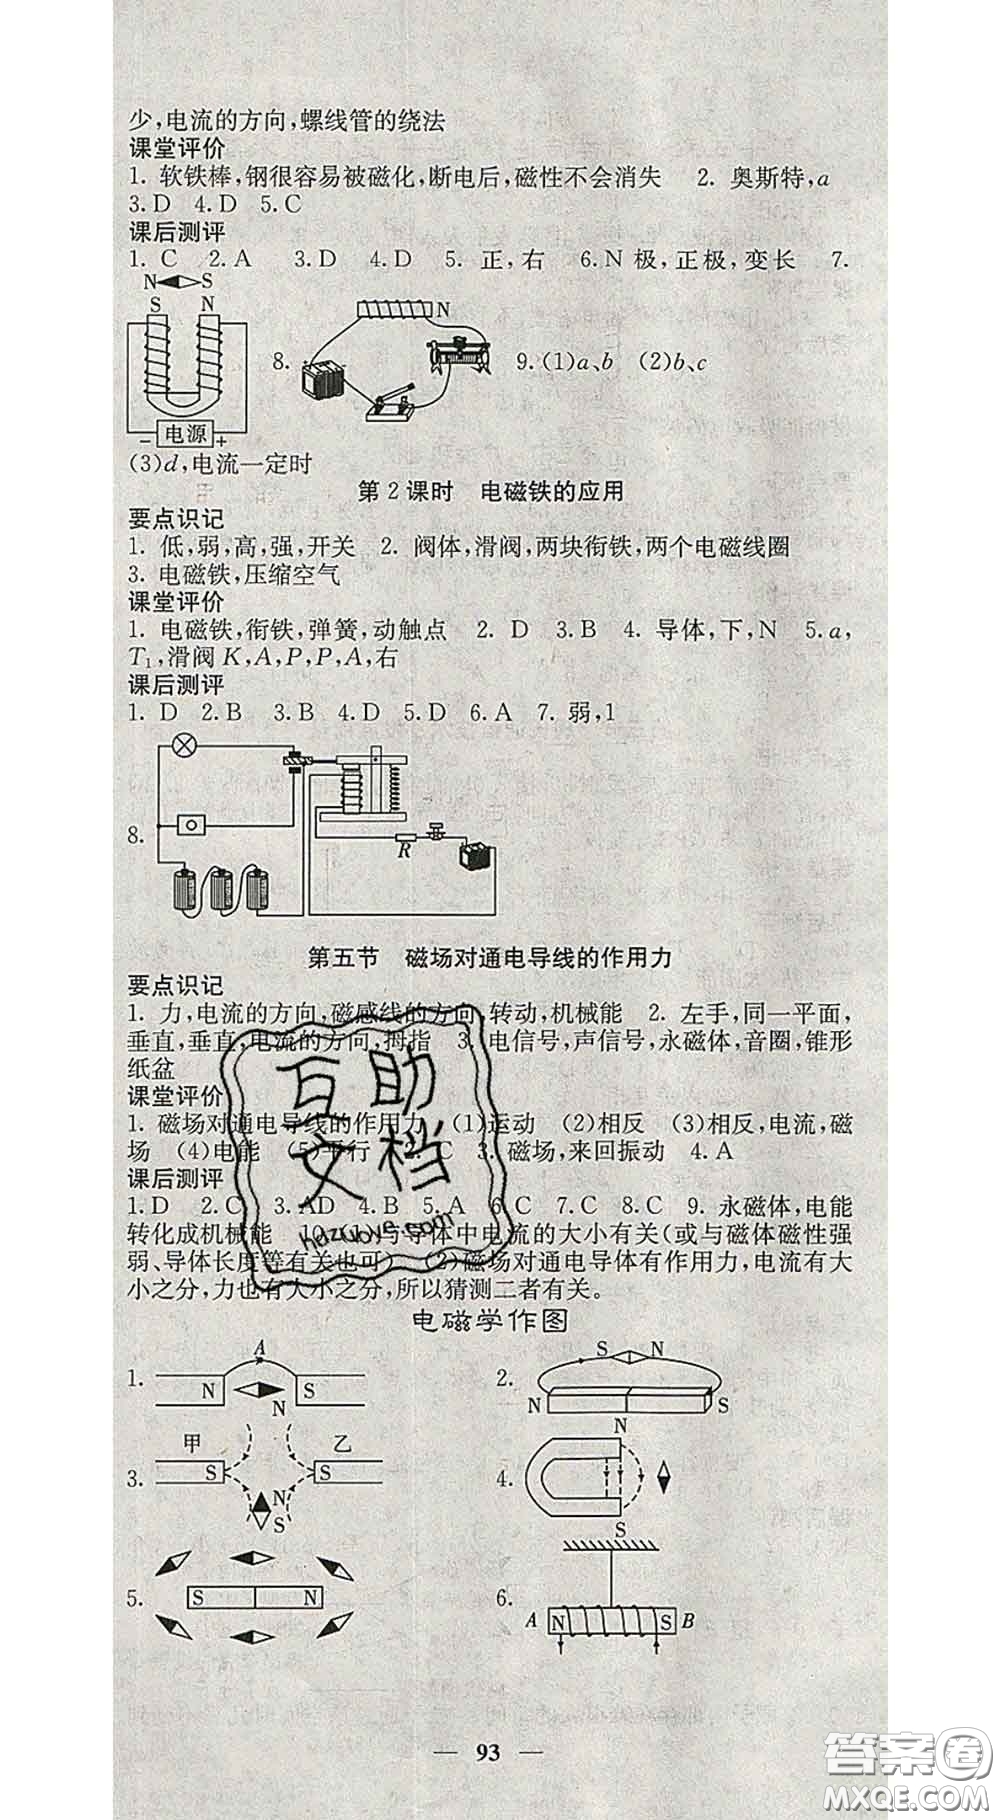 少,电流的方向,螺线管的绕法
课堂评价
1. 软铁棒,钢很容易被磁化,断电后,磁性不会消失  2. 奥斯特,a
3. D  4. D  5. C
课后测评
1. C  2. A  3. D  4. D  5. 正,右  6. N 极,正极,变长  7.
N S
S N
- 电源 +
8.
N
9. (1)a、b  (2)b、c
(3)d,电流一定时
第2课时  电磁铁的应用
要点识记
1. 低,弱,高,强,开关  2. 阀体,滑阀,两块衔铁,两个电磁线圈
3. 电磁铁,压缩空气
课堂评价
1. 电磁铁,衔铁,弹簧,动触点  2. D  3. B  4. 导体,下,N  5. a,
T₁,滑阀 K,A,P,P,A,右
课后测评
1. D  2. B  3. B  4. D  5. D  6. A  7. 弱,1
8.
R
第五节  磁场对通电导线的作用力
要点识记
1. 力,电流的方向,磁感线的方向,转动,机械能  2. 左手,同一平面,
垂直,垂直,电流的方向,拇指  3. 电信号,声信号,永磁体,音圈,锥形
纸盆
课堂评价
1. 磁场对通电导线的作用力  (1)运动  (2)相反  (3)相反,电流,磁
场  (4)电能  (5)平行  2. C  3. 磁场,来回振动  4. A
课后测评
1. D  2. C  3. AD  4. B  5. A  6. C  7. C  8. C  9. 永磁体,电能
转化成机械能  10. (1)与导体中电流的大小有关(或与磁体磁性强
弱、导体长度等有关也可)  (2)磁场对通电导体有作用力,电流有大
小之分,力也有大小之分,所以猜测二者有关。
互助
文档
hdzuoye.com
电磁学作图
1.
A
N S
N
2.
S N
N S
3.
甲 乙
S S
N
S
4.
N
S
5.
S N
6.
A N S B
— 93 —
答案圈
MXQE.COM